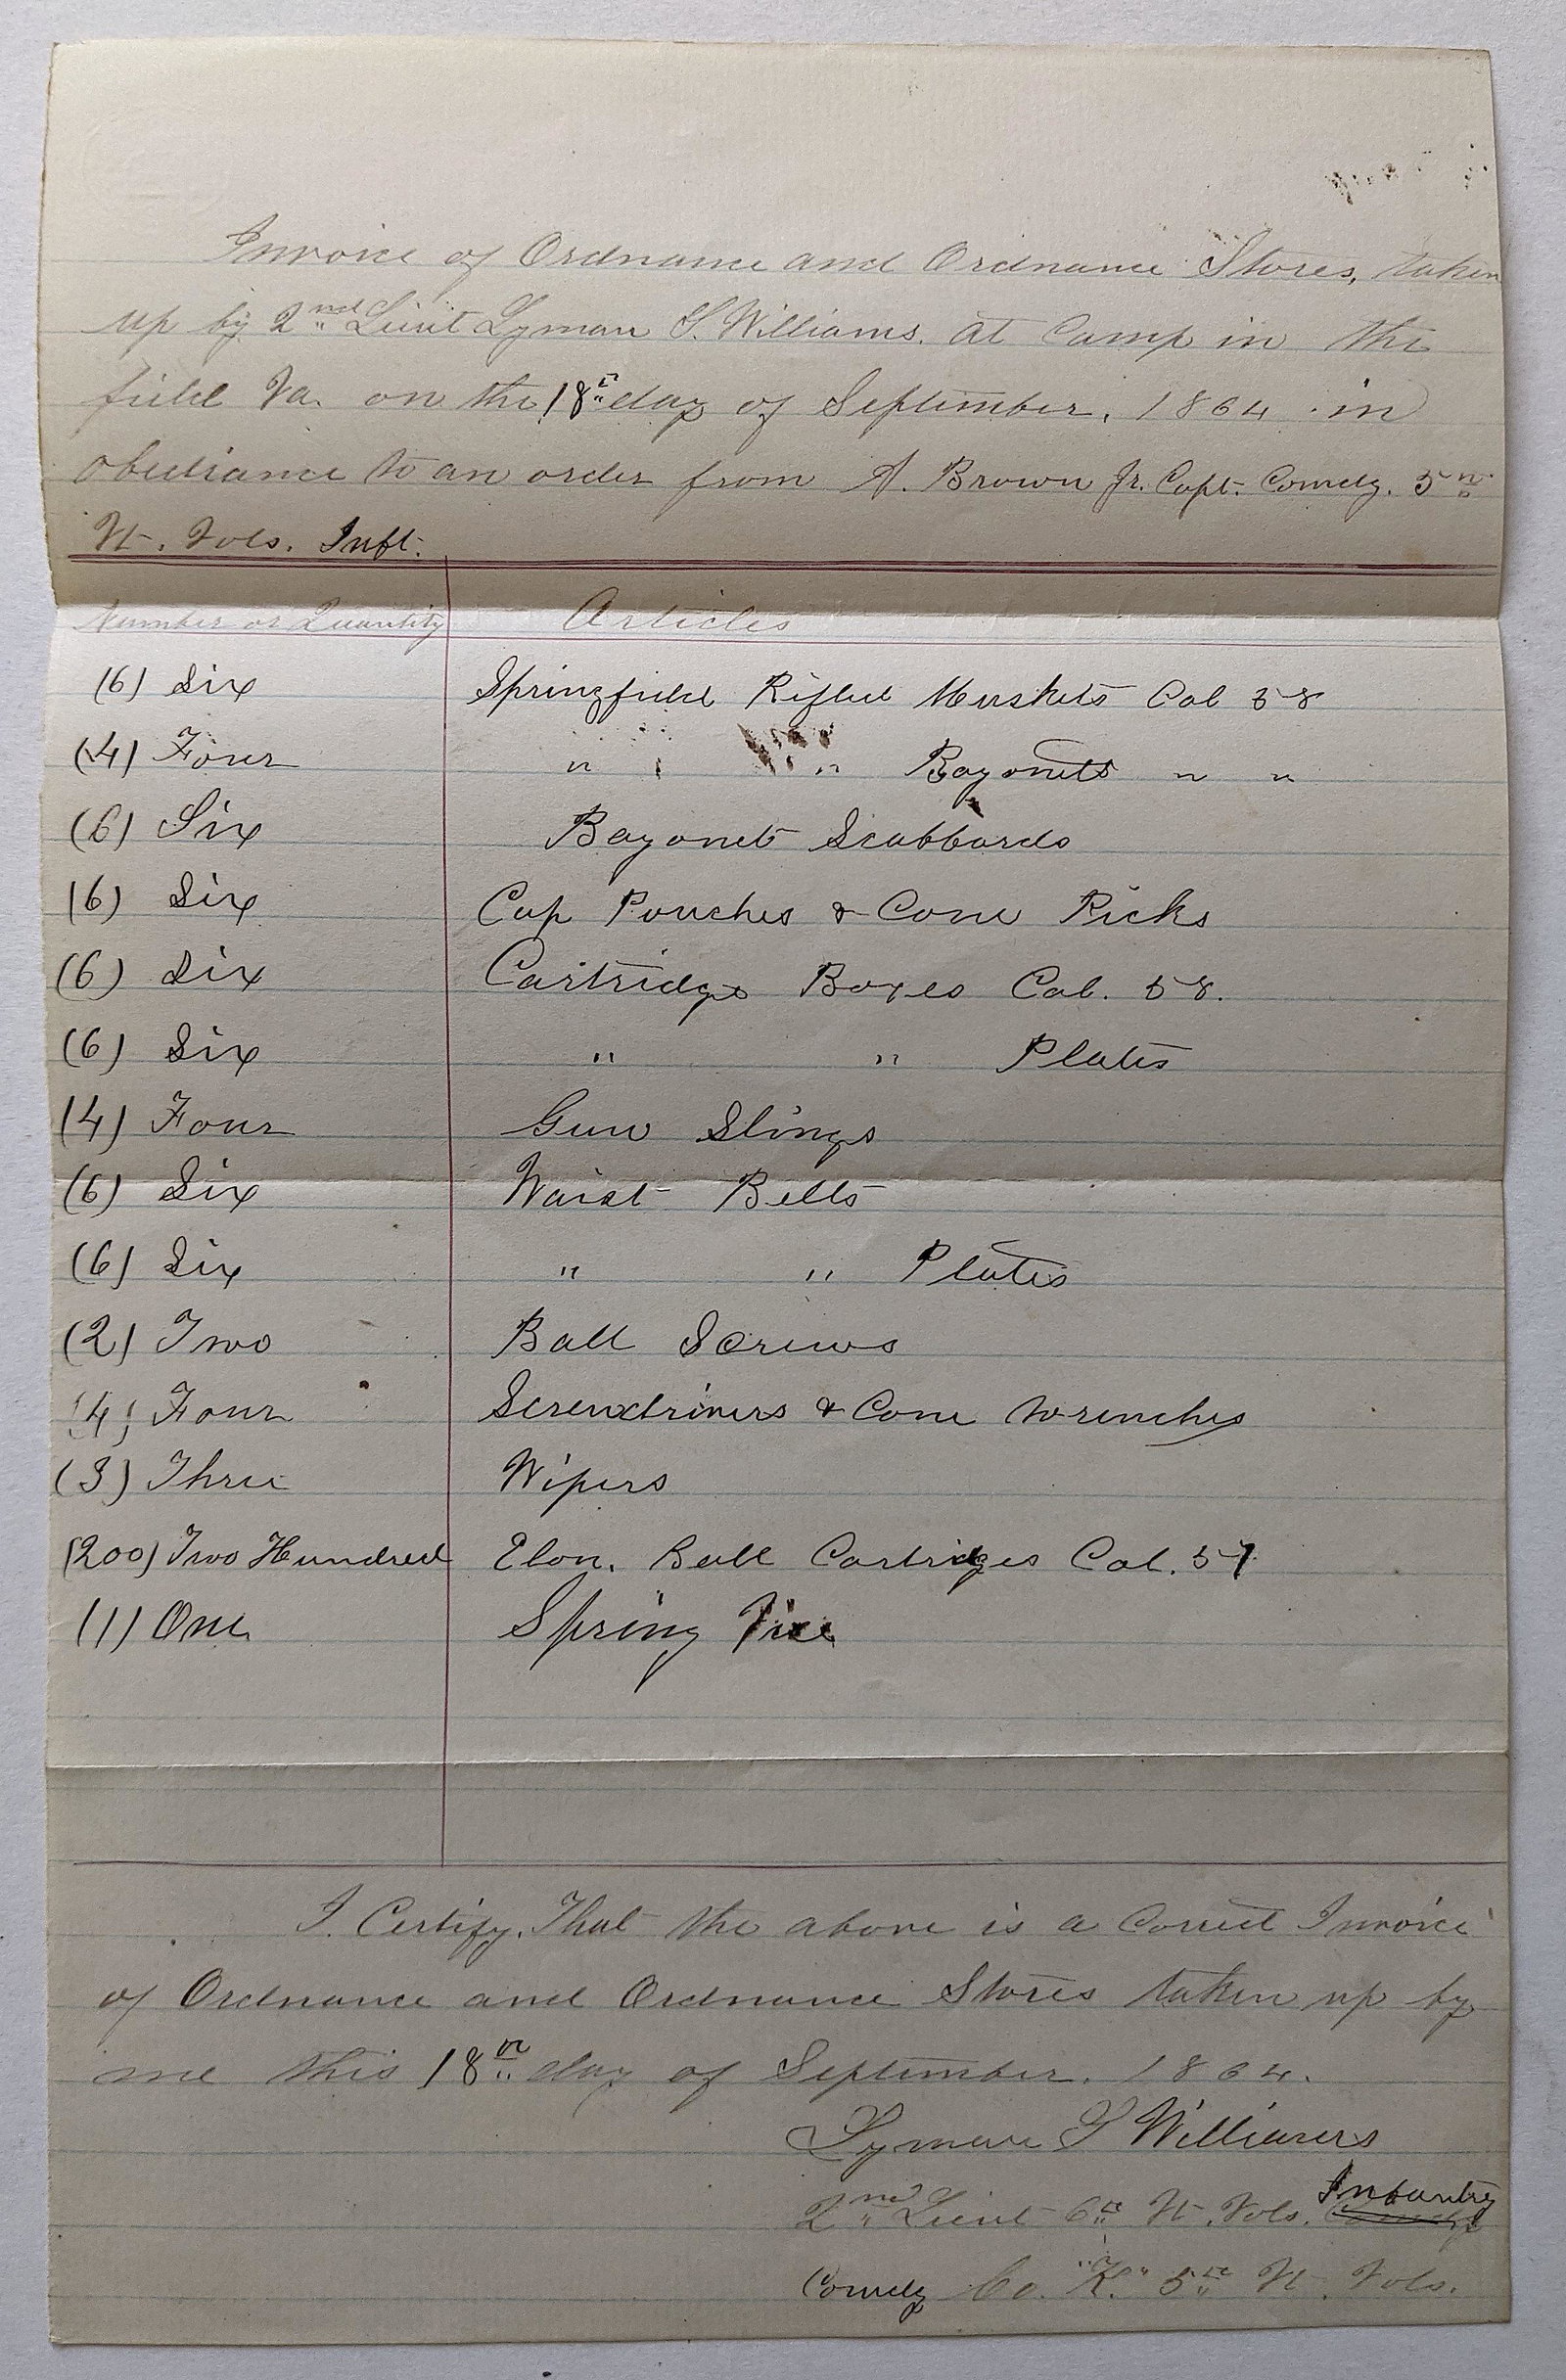 Invoice of Ordnance and Ordnance Stores, taken
up by 2nd Lieut Lyman S. Williams. at Camp in the
field Va. on the 18th day of September, 1864 in
obediance to an order from A. Brown Jr. Capt. Comdg. 5th
Vt. Vols. Inft.
Number or Quantity Articles
(6) Six Springfield Rifled Muskets Cal 58
(4) Four " " " Bayonets " "
(6) Six Bayonet Scabbards
(6) Six Cap Pouches & Cone Picks
(6) Six Cartridge Boxes Cal. 58.
(6) Six " " Plates
(4) Four Gun Slings
(6) Six Waist Belts
(6) Six " " Plates
(2) Two Ball Screws
(4) Four Screwdrivers & Cone Wrenches
(3) Three Wipers
(200) Two Hundred Elon. Ball Cartridges Cal. 57
(1) One Spring Vice
I Certify, That the above is a Correct Invoice
of Ordnance and Ordnance Stores taken up by
me this 18th day of September, 1864.
Lyman S Williams
2nd Lieut 6th Vt. Vols. Infantry
Comdg Co. "K." 5th Vt. Vols.